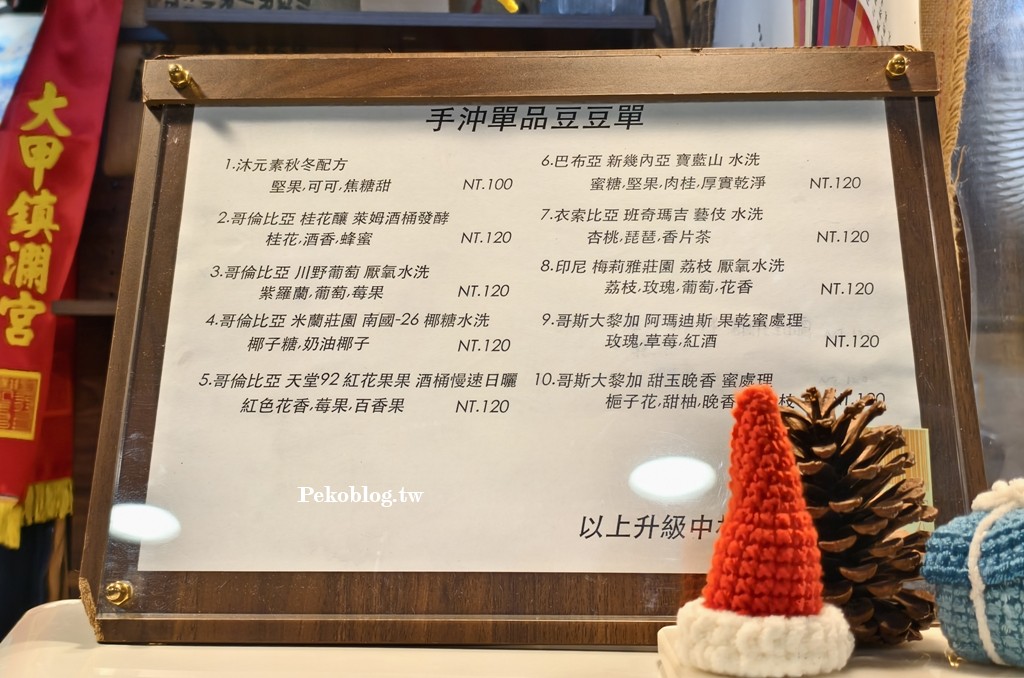 大甲鎮瀾宮
手沖單品豆豆單
1.沐元素秋冬配方
堅果,可可,焦糖甜 NT.100
2.哥倫比亞 桂花釀 萊姆酒桶發酵
桂花,酒香,蜂蜜 NT.120
3.哥倫比亞 川野葡萄 厭氧水洗
紫羅蘭,葡萄,莓果 NT.120
4.哥倫比亞 米蘭莊園 南國-26 椰糖水洗
椰子糖,奶油椰子 NT.120
5.哥倫比亞 天堂92 紅花果果 酒桶慢速日曬
紅色花香,莓果,百香果 NT.120
6.巴布亞 新幾內亞 寶藍山 水洗
蜜糖,堅果,肉桂,厚實乾淨 NT.120
7.衣索比亞 班奇瑪吉 藝伎 水洗
杏桃,琵琶,香片茶 NT.120
8.印尼 梅莉雅莊園 荔枝 厭氧水洗
荔枝,玫瑰,葡萄,花香 NT.120
9.哥斯大黎加 阿瑪迪斯 果乾蜜處理
玫瑰,草莓,紅酒 NT.120
10.哥斯大黎加 甜玉晚香 蜜處理
梔子花,甜柚,晚香
以上升級中
Pekoblog.tw